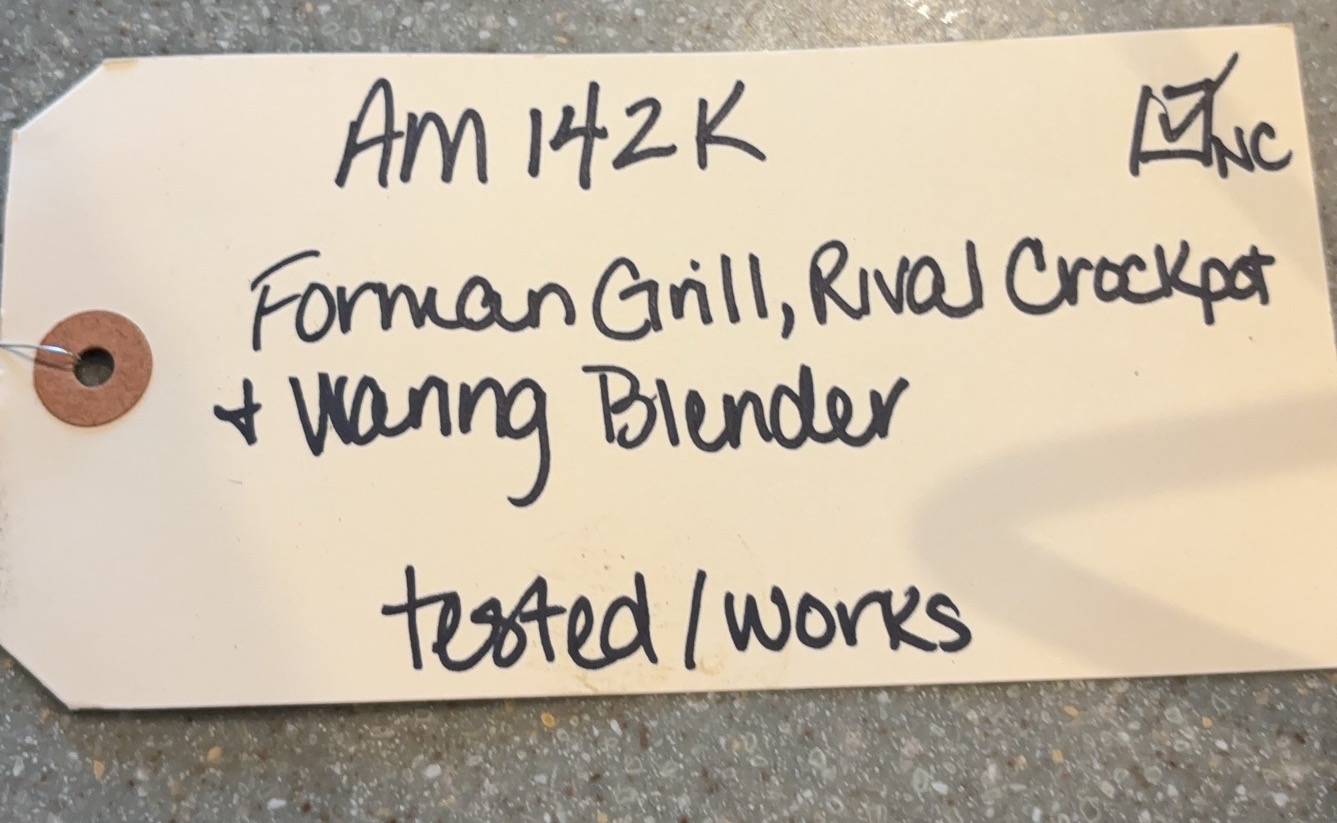 Am 142K ☑ NC
Forman Grill, Rival Crockpot
+ Waring Blender
tested / works